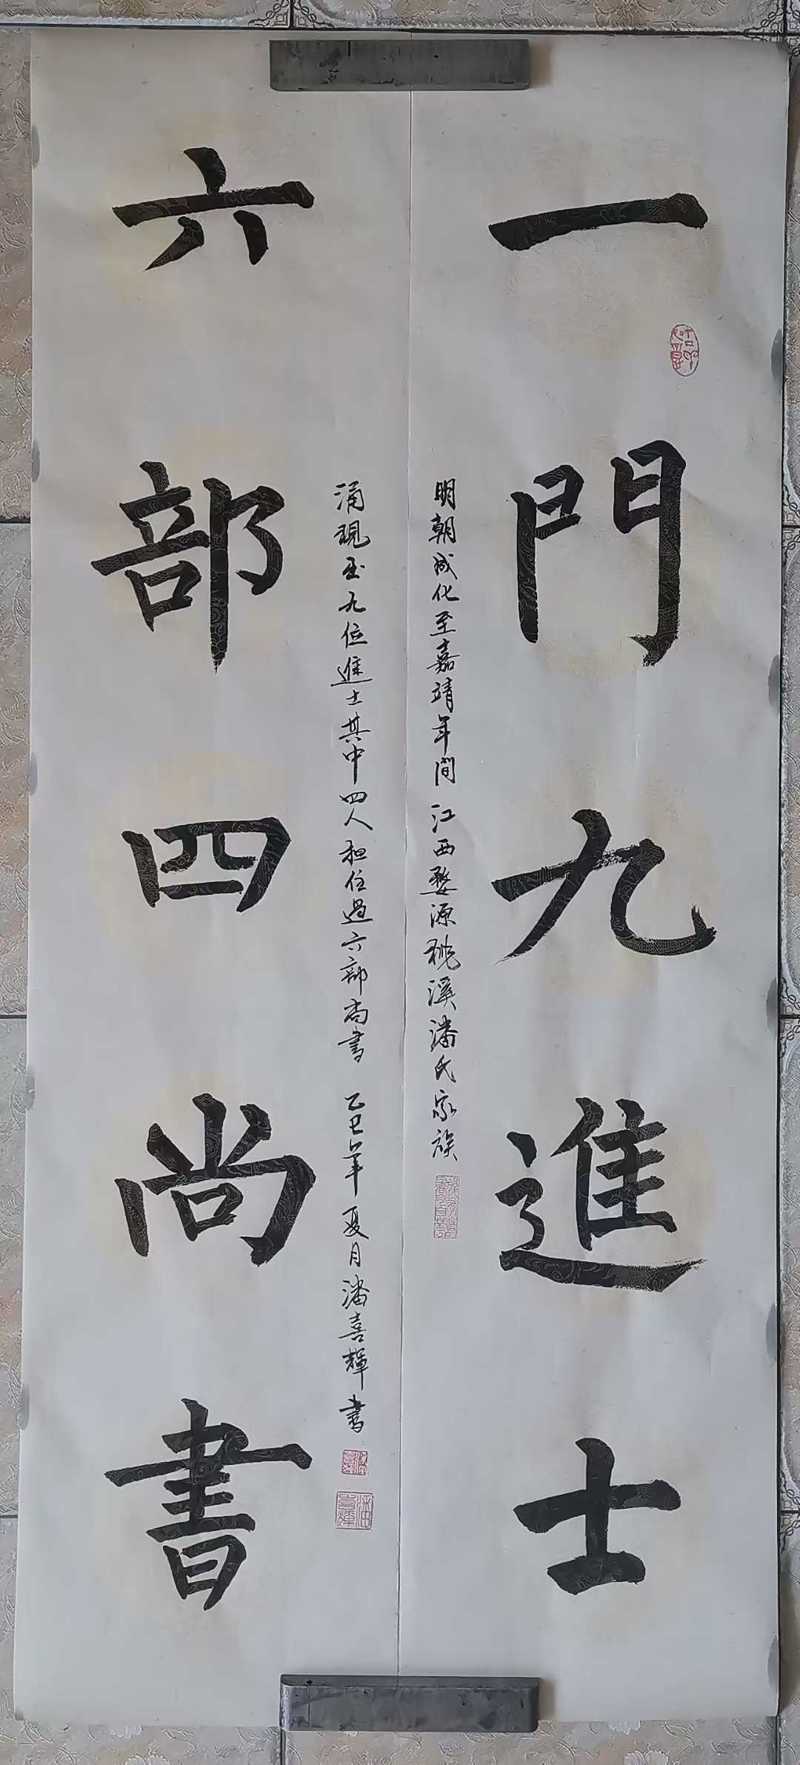 一門九進士
明朝成化至嘉靖年間江西婺源桃溪潘氏家族
六部四尚書
涌現出九位進士其中四人担任過六部尚書 乙巳年夏月潘喜輝書